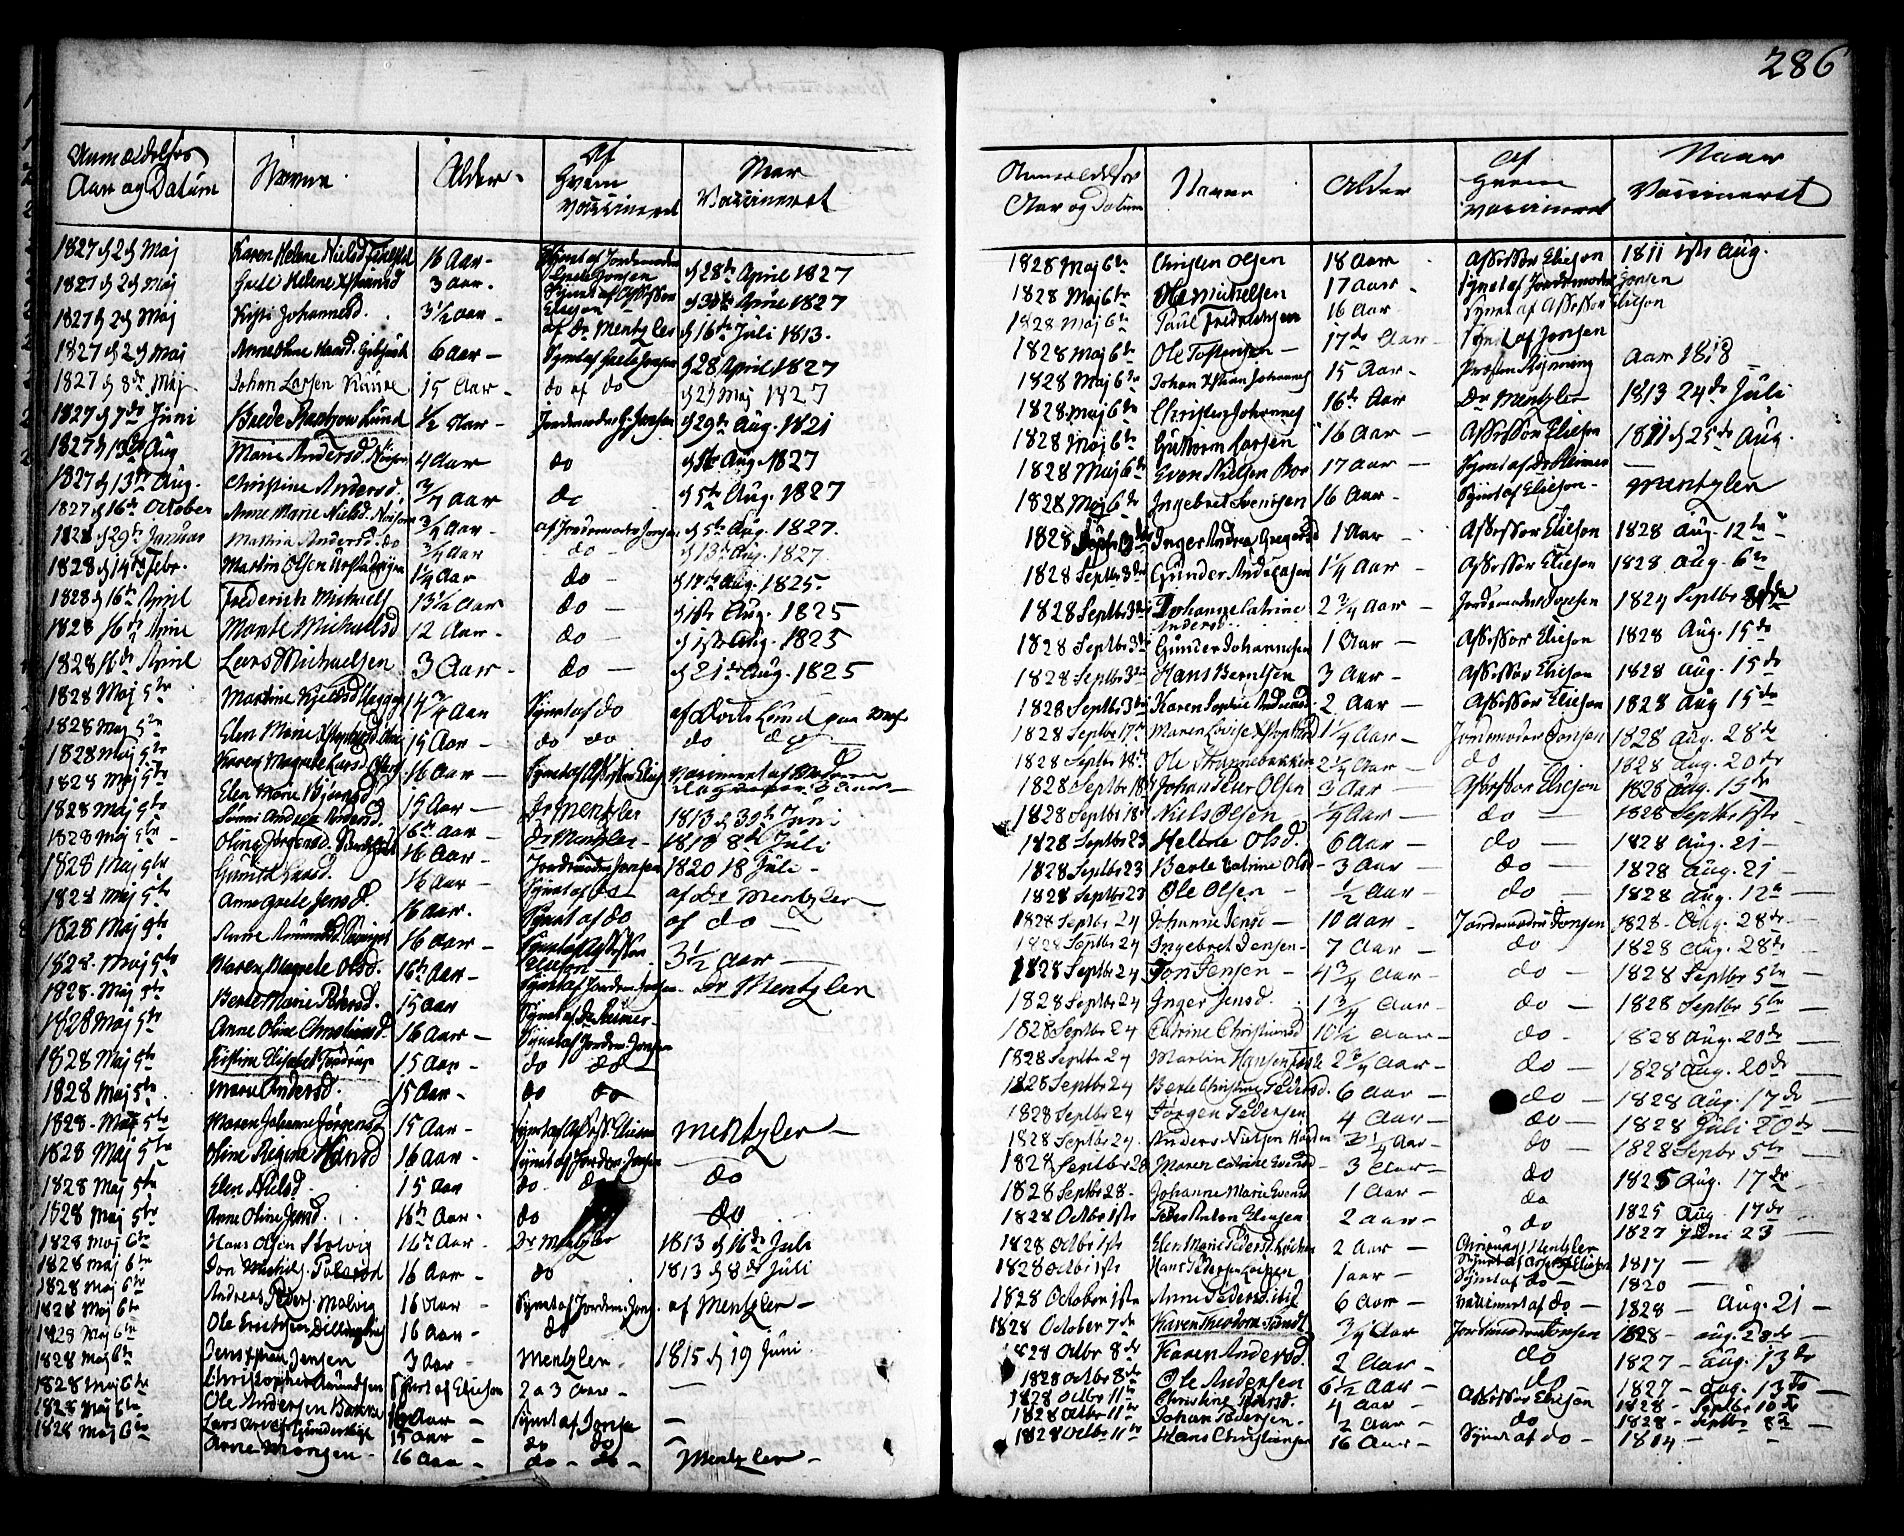 286
Anmeldelses Aar og Datum
Navne
Alder
Af Hvem Vaccineret
Naar Vaccineret
1827 d 2d Maj Karen Helene Nielsd 16 Aar - Synet af Jordemoder Grete Jonsen d 28de April 1827
1827 d 2d Maj Grete Helene 3 Aar - Synet af Assessor Eliesen April 1827
1827 d 2d Maj Kirsti Johannesd. 3½ Aar - af Dr Mentzler d 16de Juli 1813.
1827 d 2d Maj Anne Oline 6 Aar - Synet af Grete Jonsen d 28 April 1827
1827 d 8de Maj Johan Larsen 15 Aar - do af do d 2d Maj 1827
1827 d 7de Juni Brede Rantzow Lund ½ Aar - Jordemoder Jonsen d 29de Aug. 1821
1827 d 13de Aug Marie Andersd. 4 Aar do Aug. 1827
1827 d 13de Aug. Christine Andersd. ¾ Aar do d 5te Aug. 1827
1827 d 16de October Anne Marie Nielsd. ¾ Aar - af Jordemoder Jonsen d 5te Aug. 1827.
1828 d 29de Januar Mathia Andersd. do ¾ Aar do - d 13de Aug. 1827.
1828 d 14de Febr. Martin Olsen 1¼ Aar do - d 17de Aug. 1825
1828 d 16de April Frederich Michaels 13½ Aar do - d 1ste Aug. 1825
1828 16de April Michaelsd 12 Aar - do - d 1ste Aug. 1825
1828 16de April Lars Michaelsen 3 Aar - do - d 21de Aug. 1825
1828 Maj 5te Martine 14¾ Aar Synet af do af Lund paa
1828 Maj 5te Elen Marie 15 Aar - do do do do -
1828 Maj 5te Karen Magrete Larsd 16 Aar - Synet af Assessor Elies. Vaccineret af
1828 Maj 5te Elen Marie Bjørnsd 15 Aar - Dr Mentzler 1813 d 30te Juni
1828 Maj 5te Andrea Andersd. 16de Aar - Dr Mentzler - 1819 8de Juli
1828 Maj 5te Oline Jørgensd. 16 Aar - Jordmoder Jonsen 1820 18 Juli -
1828 Maj 5te Larsd. 16 Aar - Synet af do af Dr Mentzler
1828 Maj 5te Anne Grete Jensd. 16 Aar. Synet af do af do -
1828 Maj 5te Anne 16 Aar - Synet af Assessor Eliesen 3½ Aar -
1828. Maj 5te Maren Magrete Olsd. 16de Aar - Synet af Jordem Jonsen Dr Mentzler
1828. Maj 5te Berte Marie Pedersd. 15 Aar Synet af Dr Reimer -
1828 Maj 5te Anne Oline Christiansd. 16 Aar - Synet af Jordem: Jonsen
1828 Maj 5te Kirstine Elisabet 15 Aar - do do
1828 Maj 5te Marie Andersd. 15 Aar - do do
1828. Maj 5te Maren Johanne Jørgensd 15 Aar - Synet af Ass: Eliesen Mentzler -
1828 Maj 5te Oline Regine Hansd 16 Aar - Synet af Jordem Jonsen
1828 Maj 5te Elen Nielsd. 15 Aar do - do
1828 Maj 5te Anne Oline Jensd. 16de Aar - do do
1828 Maj 6te Hans Olsen Solvig 16de Aar - Dr Mentzler 1813 d 16de Juli
1828 Maj 6te 16 Aar - do 1813 d 8de Juli
1828 Maj 6te Andreas Peders. Malvig 16 Aar - Synet af Jordem: Jons. af Mentzler -
1828 Maj 6te Ole Erichsen 16 Aar - do
1828 Maj 6te Jens Jensen 3 Aar - Mentzler - 1815 d 19 Juni
1828 Maj 6te Christopher Amundsen Synet af Eliesen 2 a 3 Aar - -
1828 Maj 6te Ole Andersen 16 Aar - Synet af Jonsen -
1828 Maj 6te Lars 15 Aar - do do
Arne 16 Aar - do - do - Mentzler -
Anmeldelses Aar og Datum
Navne
Alder
Af Hvem Vaccineret
Naar Vaccineret
1828 Maj 6te Christen Olsen 18 Aar - Assessor Eliesen 1811 1ste Aug.
1828 Maj 6te Ole Michelsen 17 Aar - Synet af Jordemoder Jonsen
1828 Maj 6te Paul Fredrichsen 16 Aar Synet af Assessor Eliesen
1828 Maj 6te Ole Tostensen - 17de Aar - Synet af Jonsen
1828 Maj 6te Johan Kstian Johannes 15 Aar - Aar 1818 -
1828 Maj 6te Christen Johannes 16de Aar Dr Mentzler 1813 24de Juli
1828 Maj 6te Guttorm Larsen 16 Aar - Assessor Eliesen 1811 d 25de Aug.
1828 Maj 6te Even Nielsen Boe 17 Aar - Synet af Dr Reimer -
1828 Maj 6te Ingebret Svensen 16 Aar - Synet af Eliesen - Mentzler
1828 Septbr 3de Inger Andrea Gregersd 1 Aar - Assessor Eliesen 1828 Aug. 12te -
1828 Septbr 3de Gunder Andreasen 1¼ Aar - Assessor Eliesen 1828 Aug. 6te
1828 Septbr 3de Johanne Catrine Andersd. 2¾ Aar - Jordemoder Jonsen 1824 Septbr
1828 Septbr 3de Gunder Johannesen 1 Aar - Assessor Eliesen 1828 Aug. 15de
1828 Septbr 3de Hans Berntsen 3 Aar - Assessor Eliesen 1828 Aug. 15de
1828 Septbr 3de Karen Sophie 2 Aar - Assessor Eliesen 1828 Aug 15de
1828 Septbr 17de Maren Lovise 1¼ Aar - Jordemoder Jonsen 1828 Aug. 28de
1828 Septbr 18de Ole 2¼ Aar - do 1828 Aug. 20de
1828 Septbr 18de Johan Peter Olsen 3 Aar - Assessor Eliesen 1828 Aug. 15de
1828 Septbr 18de Niels Olsen ¾ Aar - do - 1828 Septbr 1ste
1828 Septbr 23 Helene Olsd. 6 Aar - do - 1828 Aug. 21 -
1828 Septbr 23 Berte Catrine Olsd - 3 Aar - do - 1828 Aug. 21
1828 Septbr 23 Ole Olsen - ½ Aar - do - 1828 Aug. 12te -
1828 Septbr 24 Johanne Jensd - 10 Aar - Jordemoder Jonsen 1828. Aug. 28de -
1828 Septbr 24 Ingebret Jensen - 7 Aar - do 1828 Aug. 28de
1828 Septbr 24 Jon Jensen - 4¾ Aar - do - 1828 Septbr 5te -
1828 Septbr 24 Inger Jensd. 1¾ Aar - do - 1828 Septbr 5te
1828 Septbr 24 Catrine Christiansd 10½ Aar - do - 1828 Aug. 20de -
1828 Septbr 24 Martin Hansen 2¾ Aar - do - 1828 Aug. 20de -
1828 Septbr 24 Berte Christine Pedersd. 6 Aar - do - 1828 Aug. 17de -
1828 Septbr 24 Jørgen Pedersen 4 Aar - do - 1828 Juli
1828 Septbr 24. Anders Nielsen 2¼ Aar - do 1828 Septbr 5te -
1828 Septbr 28 Maren Catrine Evensd - 3 Aar - do 1825 Aug. 17de -
1828 Septbr 28 - Johanne Marie Evensd 1 Aar - do 1825 Aug. 17de -
1828 Octbr 1ste Peder Anton Eliesen 2 Aar - do 1827 Juni 23 -
1828 Octbr 1ste Elen Marie Pedersd. 2 Aar - Chirurg Mentzler 1817 -
1828 Octbr 1ste Hans Pedersen 1 Aar - Synet af Assess: Eliesen 1820 -
1828 October 1ste Anne Pedersd. ibid 6 Aar - Vaccineret af do - 1828 - Aug. 21 -
1828 October 7de Karen Theodora ¾ Aar Jordemoder Jonsen 1828 - Aug. 28de -
1828 Octbr 8de Karen Andersd. 2 Aar - do 1827 - Aug. 13de
1828 Octbr 8de Ole Andersen 6½ Aar - do 1827 - Aug. 13de -
1828 Octbr 11te Christine Pedersd. 4 Aar - Assessor Eliesen 1828 - Septbr 10de
1828 Octbr 11te Johan Pedersen - 2 Aar - do 1828 - Septbr 8de -
1828 Octbr 11te Hans Christiansen 16 Aar - Synet af do - 1814 - -